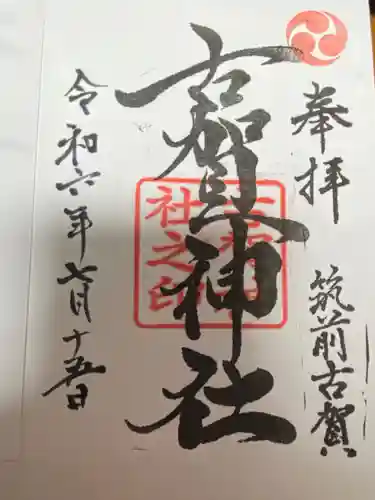 奉拝
筑前古賀
古賀神社
社之印
令和六年七月十五日